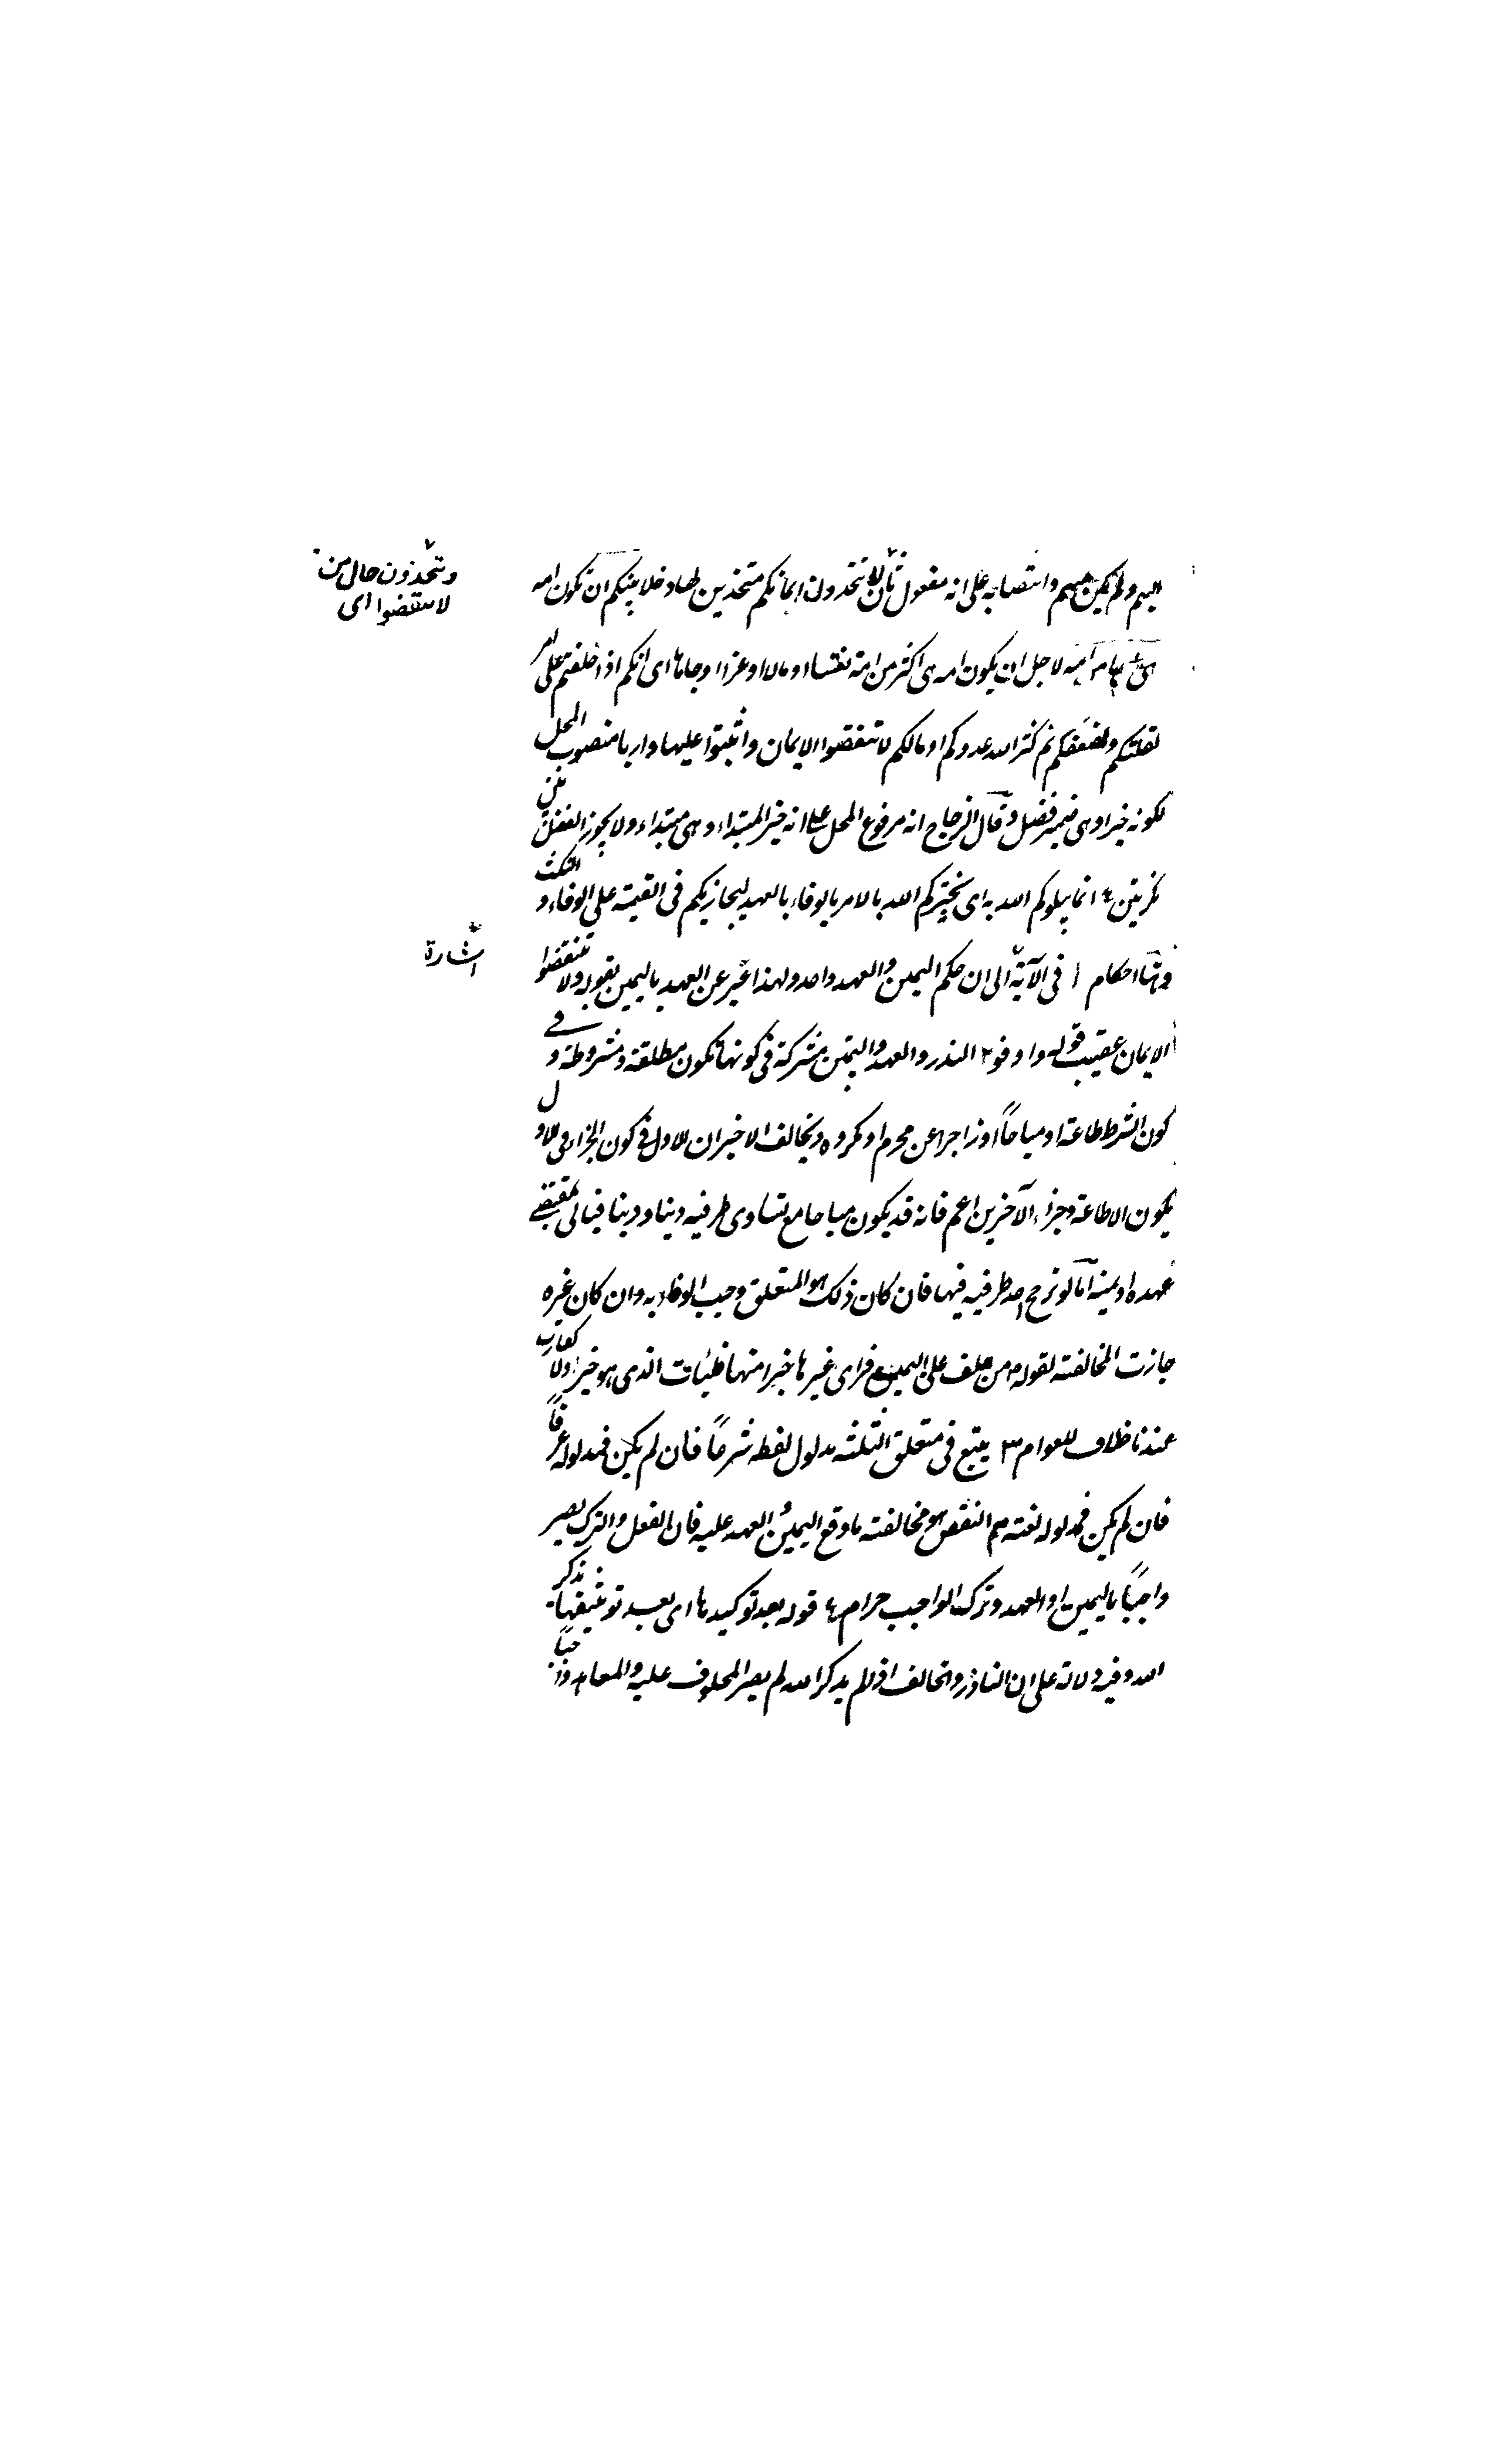 اليهم ولم يكن منهم وانتصابه على انه مفعول ثان لا تتخذون ايمانكم متخذين لها دخلا بينكم ان تكون امه
لاجل ان يكون امه هى اكثر من امة نفسا او مالا او عزا او جاها اى انكم اذا حلفتم على امر
لقلتكم ولضعفكم ثم كثر الله عددكم او مالكم لا تنقضوا الايمان واثبتوا عليها واربا منصوب المحل
لكونه خبرا وهى ضمير فصل وقال الزجاج انه مرفوع المحل على انه خبر المبتداء وهى مبتداء ولا يجوز الفصل بين
نكرتين ٤ انما يبلوكم الله به اى يختبركم الله بالامر بالوفاء بالعهد ليجازيكم فى القيمة على الوفاء و النكث
وهنا احكام ا فى الآية الى ان حكم اليمين والعهد واحد ولهذا عبر عن العهد باليمين بقوله ولا تنقضوا
الايمان عقيب قوله واوفو ٢ النذر والعهد واليمين مشركة فى كونها تكون مطلقة ومشروطة و فى
كون الشرط طاعة او مباحاً او زاجرا عن محرم او مكروه ويخالف الاخيران للاول فى كون الجزاء فى الاول
يكون الا طاعة وجزاء الآخرين اعم فانه قد يكون مباحا مع تساوى طرفيه دينا ودنيا فياتى بمقتضى
عهده او يمينه اما لو ترجح احد طرفيه فيها فان كان ذلك هو المتعلق وجب الوفاء به وان كان غيره
جازت المخالفة لقوله من حلف على اليمين فراى غيرها خيرا منها فليات الذى هو خير ولا كفارة
عندنا خلاف للعوام ٣ يتبع فى متعلق الثلثة مدلول لفظه شرعاً فان لم يكن فمدلوله عرفاً
فان لم يكن فمدلوله لغة ثم النقض هو مخالفة ما وقع اليمين و العهد عليه فان الفعل والترك يصير
واجباً باليمين او العهد وترك الواجب حرام ٤ قوله بعد توكيدها اى بعد توثيقها بذكر
الله وفيه دلالة على ان الناذر والحالف اذا لم يذكر الله لم يصر المحلوف عليه والمعاهد واجباً
وتتخذون حال من
لا تنقضوا اى
اشارة